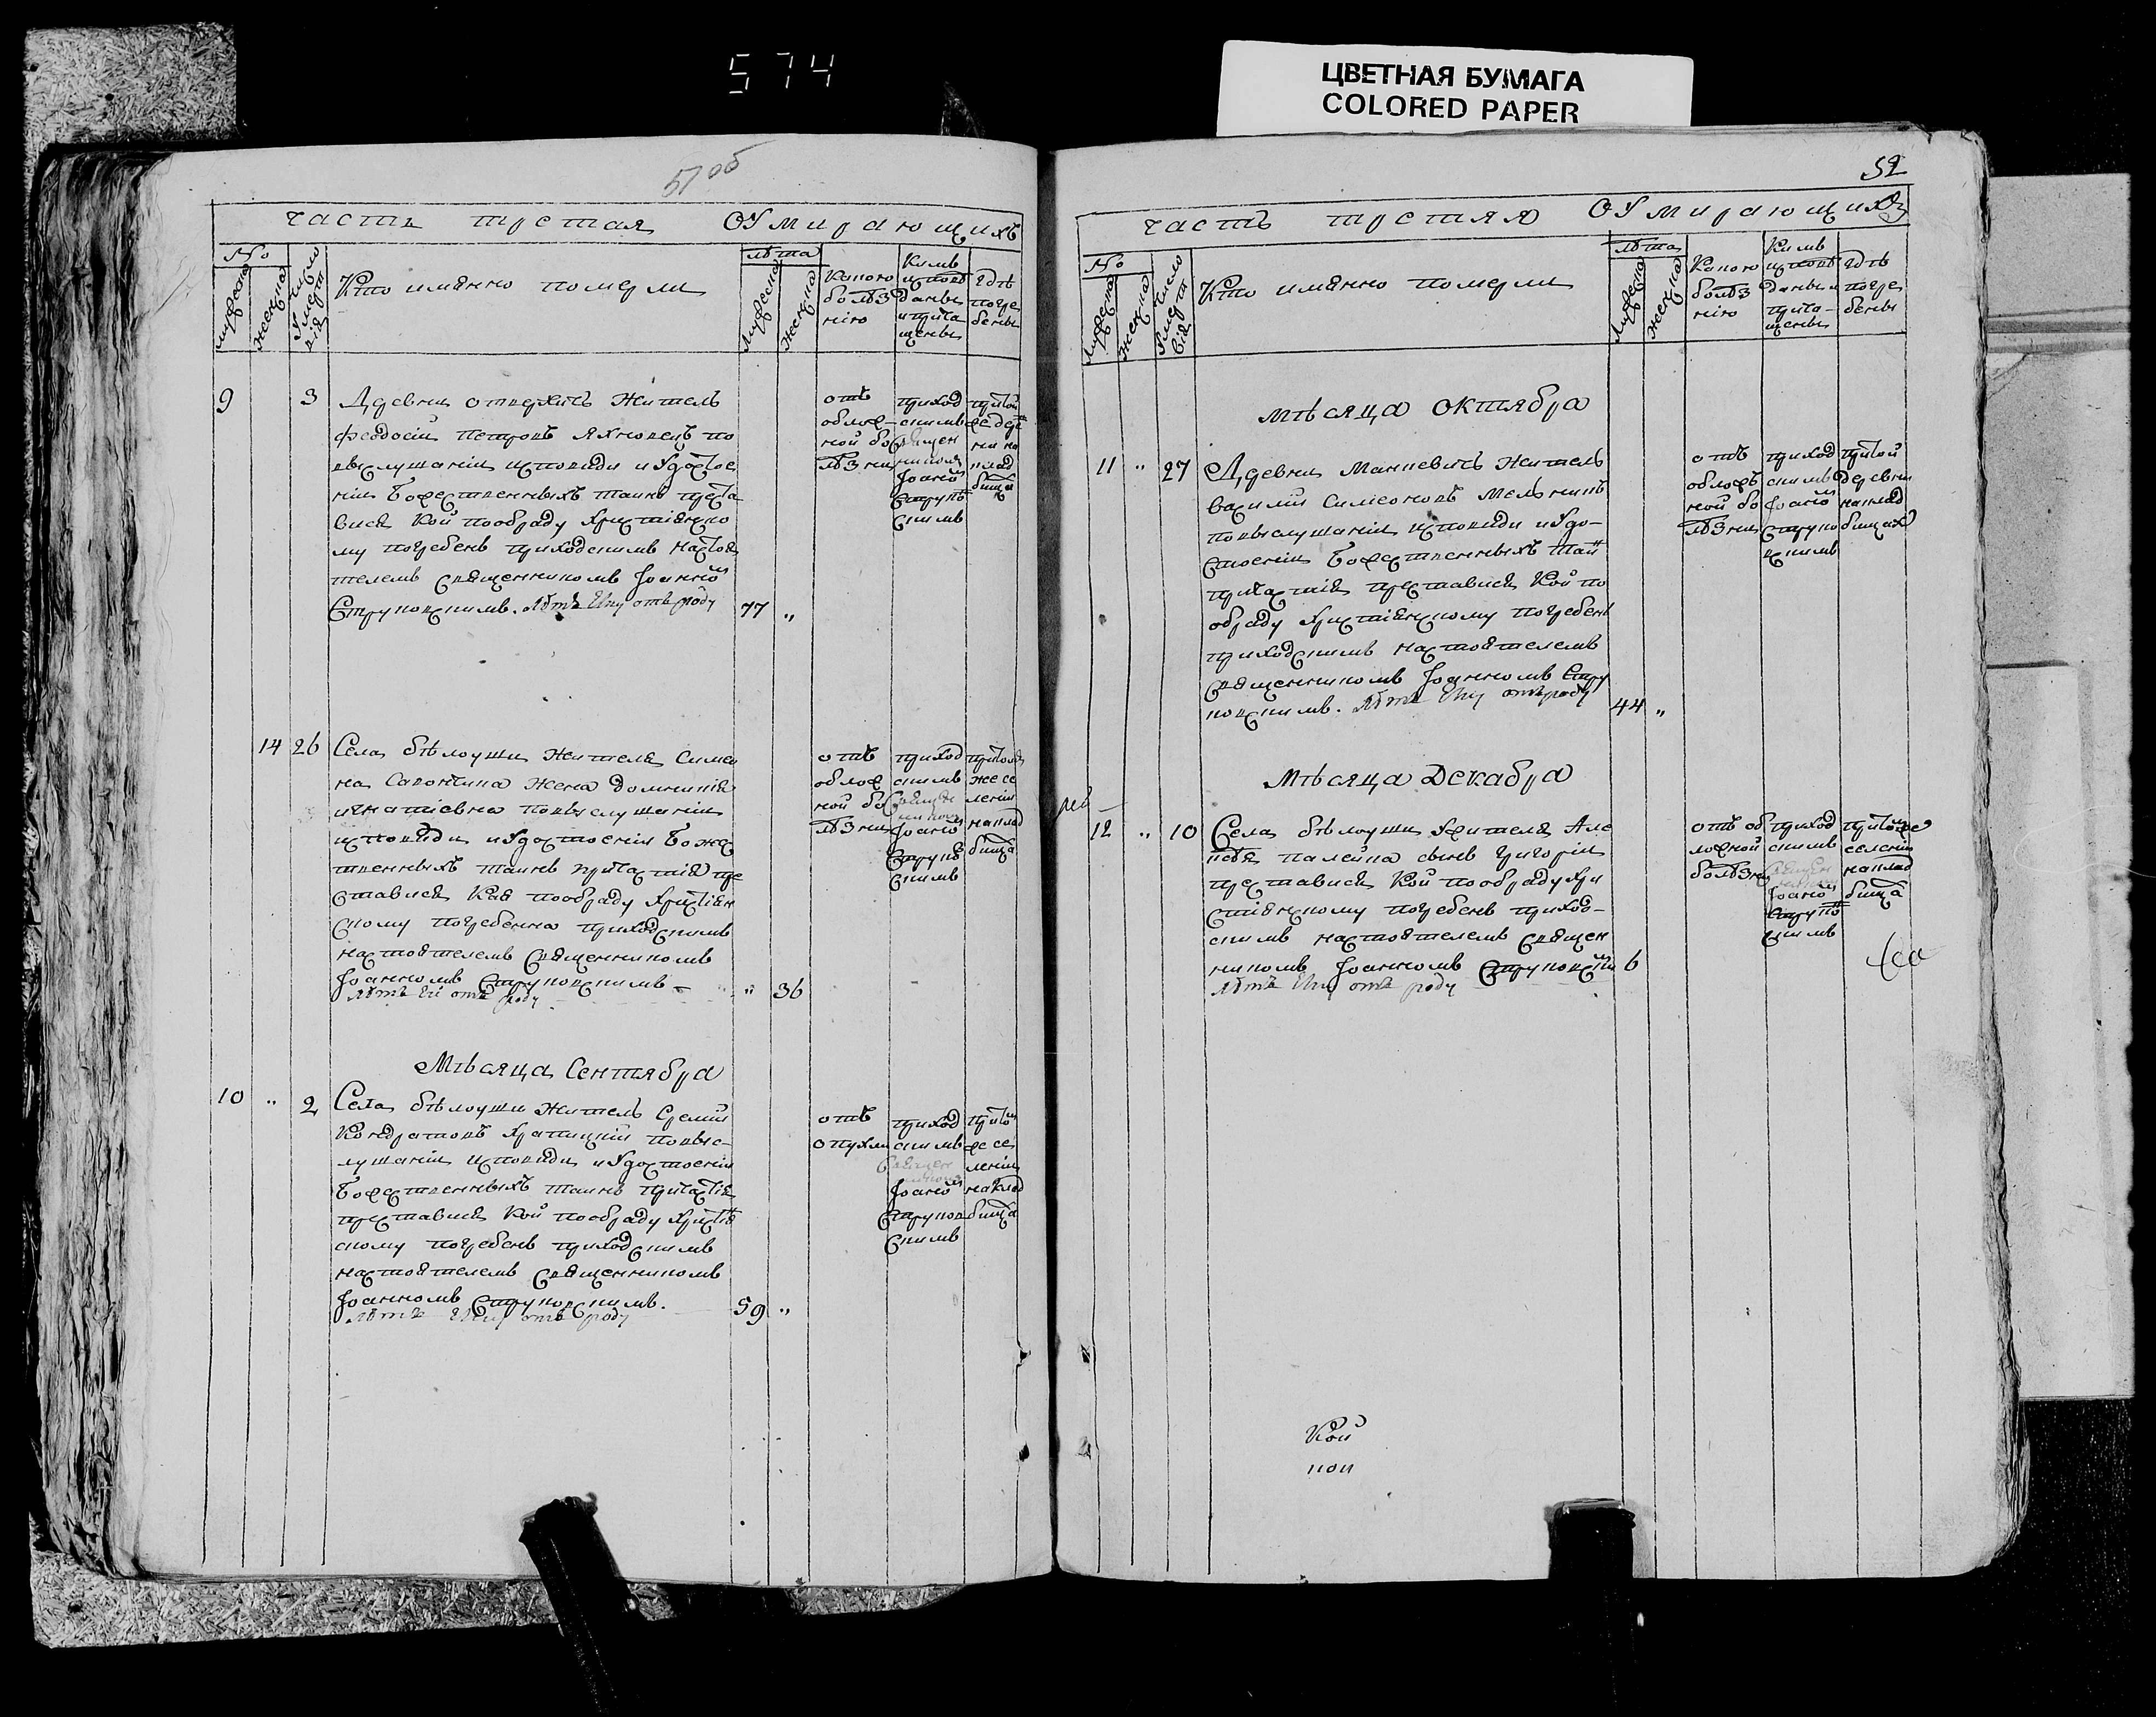 574
ЦВЕТНАЯ БУМАГА
COLORED PAPER
51 об
часть третая О Умирающихъ
№
мужеска
женска
Число
Смерт
вія
Кто имянно померли
лѣта
мужеска
женска
Какою
болѣз
нію
Кимъ
исповѣ
даны
и прича
щены
Гдѣ
погре
бены
9 3 Деревни Житель
Феодосій Петровъ Яхновецъ по
выслушаніи исповиди и Удостое
ніи Божественныхъ таинъ преста
вися кой пообраду Христіянско
му погребенъ приходскимъ настоя
телемъ Священникомъ Іоанномъ
Струповскимъ. Лѣтъ Ему отъ роду 77 „
отъ
облож
ной бо
лѣзни
приход
скимъ
Священ
никомъ
Іоаномъ
Струпов
скимъ
при той
же дере
вни на
клад
бища
14 26 Села бѣлоуши жителя Симео
на Сапожнина Жена Домникія
Игнатіевна повыслушаніи
исповиди и Удостоеніи Божес
твенныхъ таинъ причастія пре
ставися Кая пообраду Христіян
скому погребенна приходскимъ
настоятелемъ Священникомъ
Іоанномъ Струповскимъ –
Лѣтъ Ей отъ роду „ 36
отъ
облож
ной бо
лѣзни
приход
скимъ
Священ
никомъ
Іоаномъ
Струпов
скимъ
при томъ
же се
леніи
на клад
бища
Мѣсяца Сентября
10 „ 2 Села бѣлоуши житель Еремій
Кондратовъ Храпицкій повыс-
лушаніи исповиди и Удостоеніи
Божественныхъ таинъ причастія
преставися Кой пообраду Христіян
скому погребенъ приходскимъ
настоятелемъ Священникомъ
Іоанномъ Струповскимъ.
Лѣтъ Ему отъ роду 59 „
отъ
опухли
приход
скимъ
Священ
никомъ
Іоаномъ
Струпов
скимъ
при том
же се
леніи
наклад
бища
52
часть третяя О Умирающихъ
№
мужеска
женска
Число
Смерт
вія
Кто имянно померли
лѣта
мужеска
женска
Какою
болѣз
нію
Кимъ
исповѣ
даны и
прича-
щены
Гдѣ
погре
бены
Мѣсяца Октября
11 „ 27 Деревни Маньевичъ Житель
Василій Симеоновъ Мельникъ
повыслушаніи исповиди и Удо-
стоеніи Божественныхъ таинъ
причастія преставися Кой по
обраду Христіянскому погребенъ
приходскимъ настоятелемъ
Священникомъ Іоанномъ Стру
повскимъ. Лѣтъ Ему отъ роду 44 „
отъ
облож
ной бо
лѣзни
приход
скимъ
Іоаномъ
Струпо
вскимъ
при той
деревни
наклад
бищах
Мѣсяца Декабря
12 „ 10 Села бѣлоуши жителя Але
Палейка сынъ Григорій
преставися Кой пообраду Хри
стіянскому погребенъ приход-
скимъ настоятелемъ Священ
никомъ Іоанномъ Струповскимъ 6
Лѣтъ Ему отъ роду
отъ об
ложной
болѣзни
приход
скимъ
Священ
никомъ
Іоаномъ
Струпов
скимъ
при томже
селеніи
наклад
бища
Кой